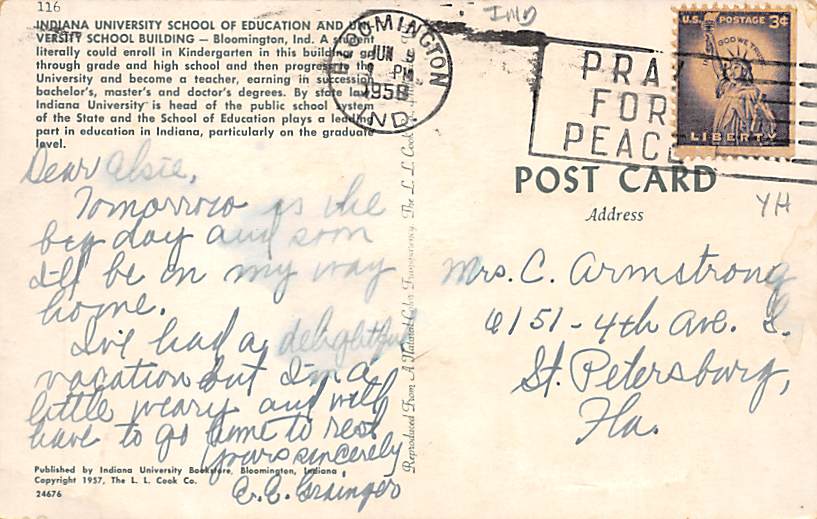 116
INDIANA UNIVERSITY SCHOOL OF EDUCATION AND UNI-
VERSITY SCHOOL BUILDING — Bloomington, Ind. A student
literally could enroll in Kindergarten in this building, go
through grade and high school and then progress to the
University and become a teacher, earning in succession
bachelor's, master's and doctor's degrees. By state law
Indiana University is head of the public school system
of the State and the School of Education plays a leading
part in education in Indiana, particularly on the graduate
level.
BLOOMINGTON
JUN
PM
1958
IND.
IND
PRAY
FOR
PEACE
U.S. POSTAGE 3¢
IN GOD WE TRUST
LIBERTY
POST CARD
Address
YH
Dear Elsie,
Tomorrow is the
big day and soon
I'll be on my way
home.
I've had a delightful
vacation but I'm a
little weary and will
have to go home to rest.
Yours sincerely
E.C. Grainger
Mrs. C. Armstrong
6151-4th Ave. S.
St. Petersburg,
Fla.
Reproduced From A Natural Color Transparency. The L. L. Cook
Published by Indiana University Bookstore, Bloomington, Indiana
Copyright 1957, The L. L. Cook Co.
24676